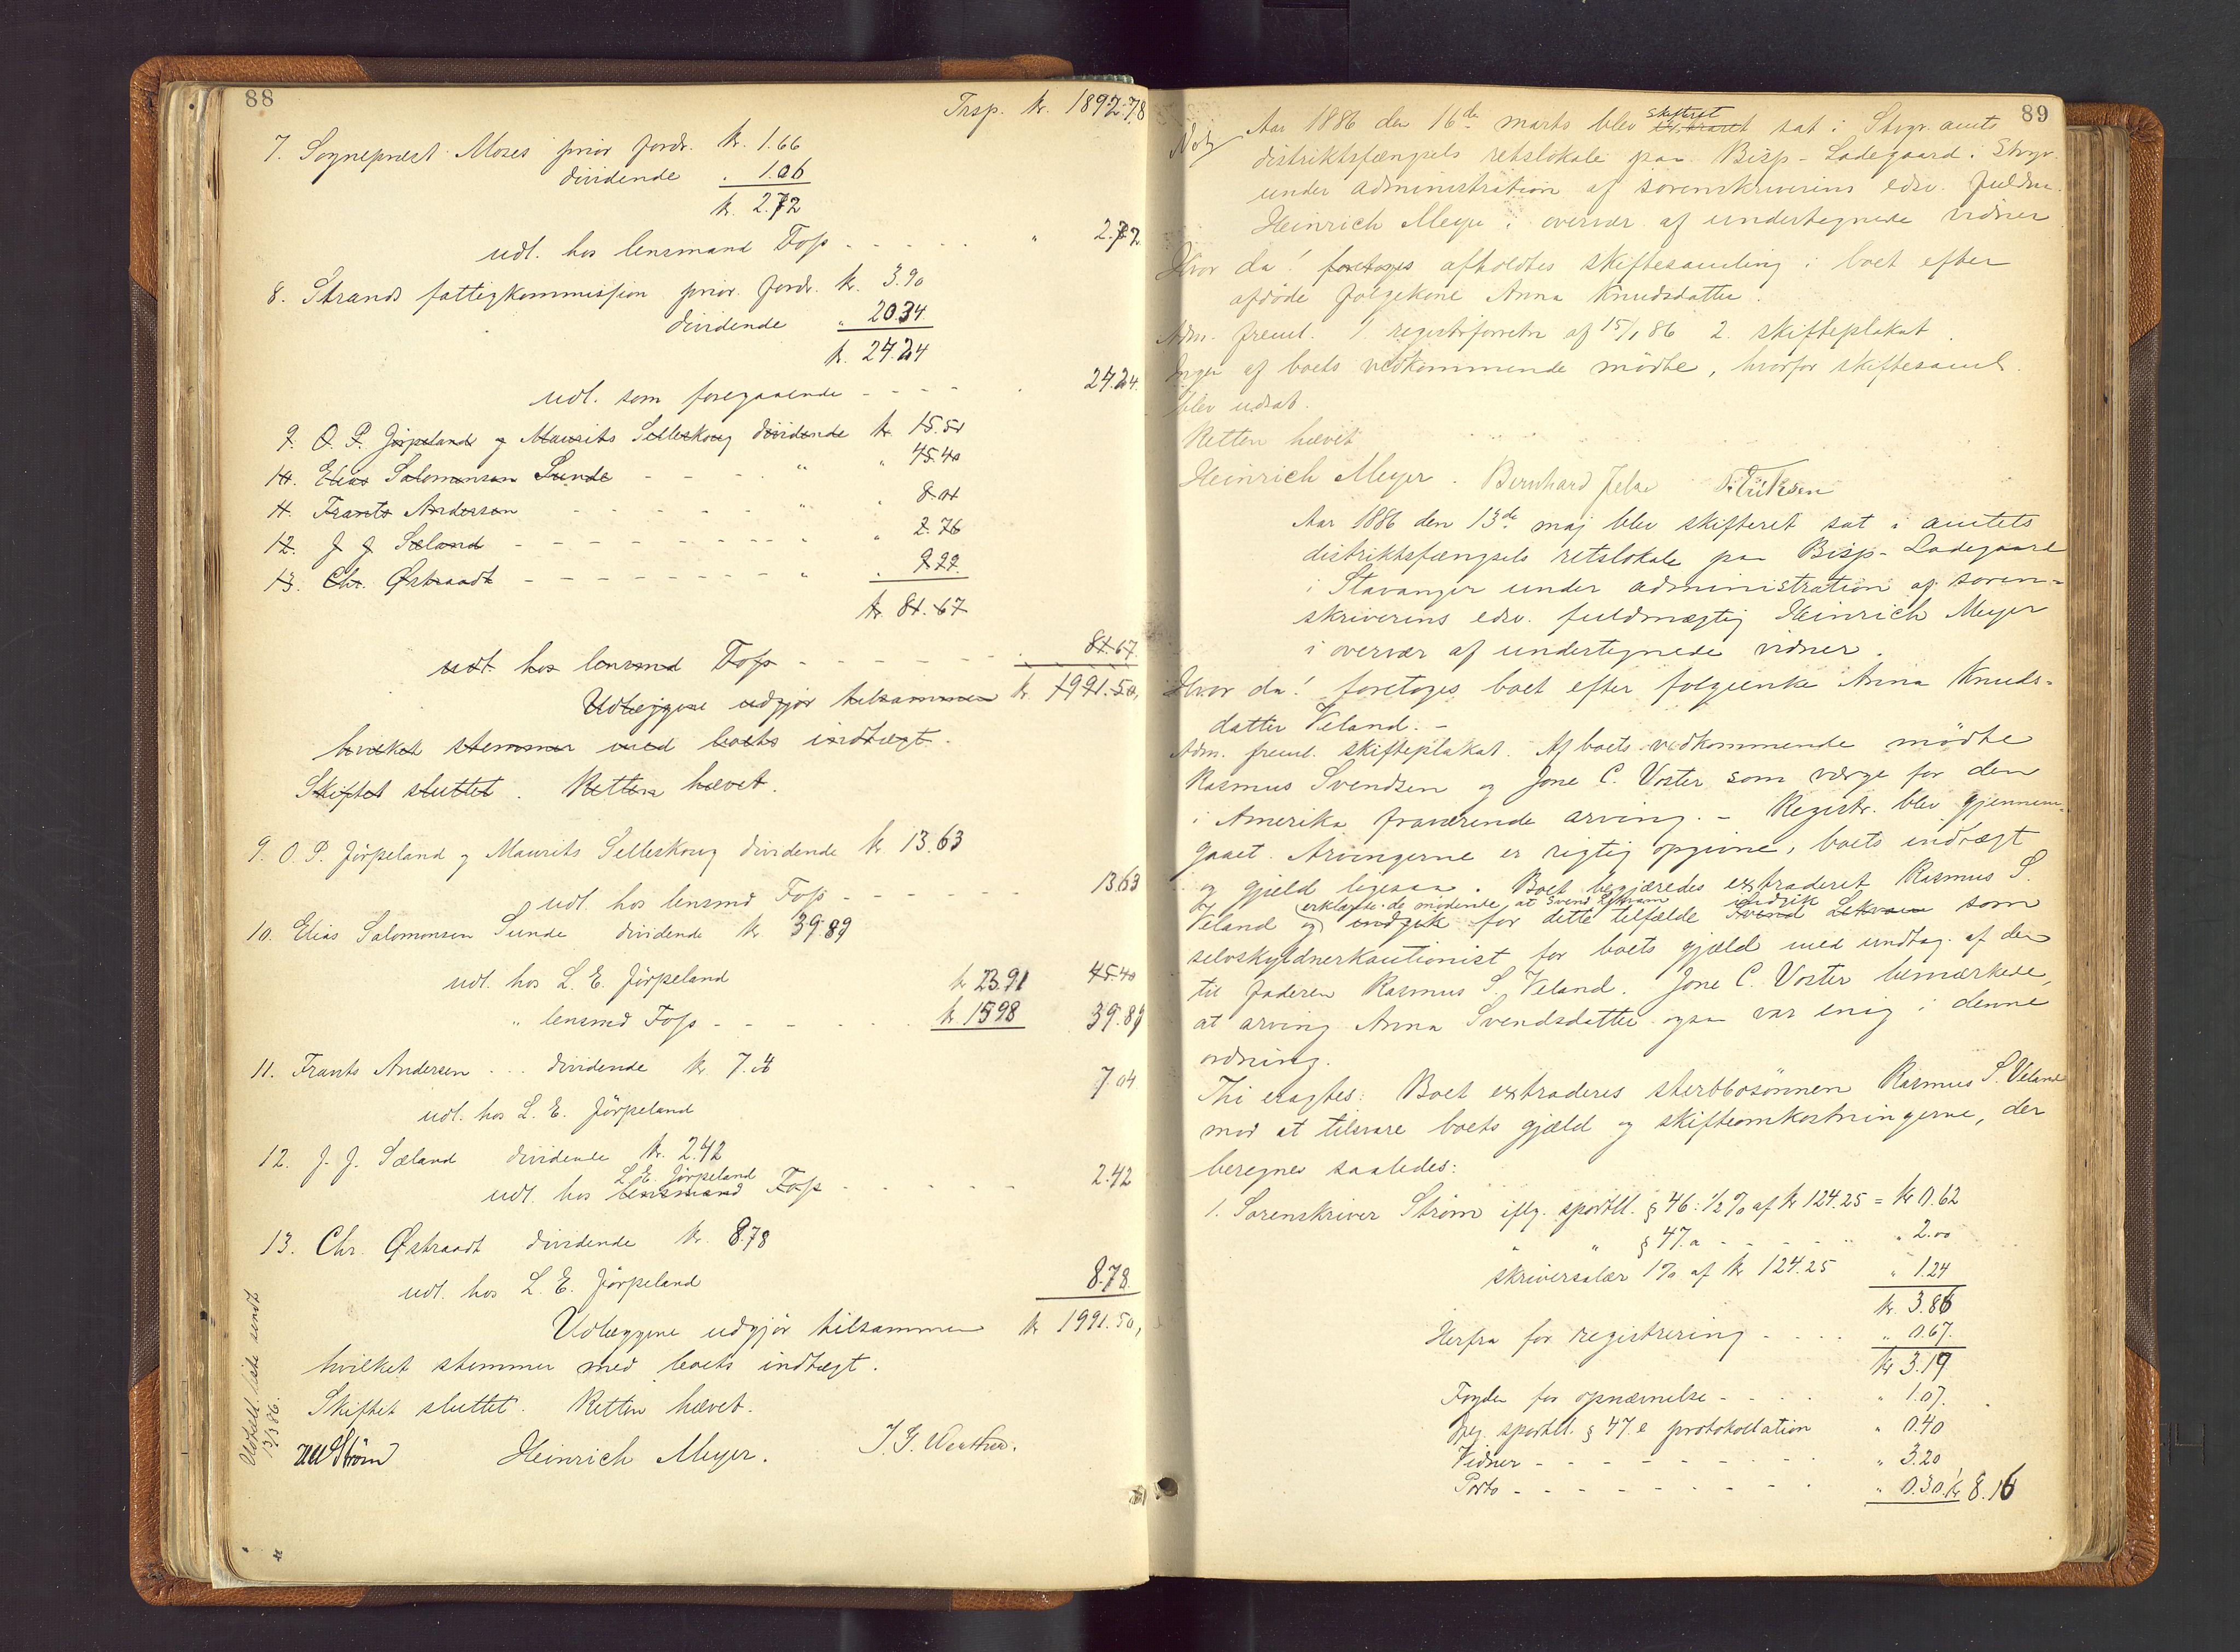 88
Trsp. kr. 1892.78
7. Sogneprest Moses prior fordr. kr. 1.66
dividende " 1.06
kr. 2.72
udl. hos lensmand Foss - - - - - " 2.72
8. Strands fattigkommission prior. fordr. kr. 3.90
dividende " 20.34
kr. 24.24
udl. som foregaaende - - - " 24.24.
9. O. P. Jørpeland og Maurits Selleskoug dividende kr. 15.51
10. Elias Salomonsen Sunde - - - " " 45.40
11. Frants Andersen - - - - - " " 8.01
12. J. J. Sæland - - - - - - - - " " 2.76
13. Chr. Østraadt - - - - - - - - " " 9.99.
kr. 81.67
udl. hos lensmd Foss - - - - - - 81.67
Udlæggene udgjør tilsammen kr. 1991.50,
hvilket stemmer med boets indtægt.
Skiftet sluttet. Retten hævet.
9. O. P. Jørpeland og Maurits Selleskoug dividende kr. 13.63
udl. hos lensmd Foss - - - - - 13.63
10. Elias Salomonsen Sunde dividende kr. 39.89
udl. hos L. E. Jørpeland kr. 23.91 45.40
" lensmd Foss - - - - kr. 15.98 39.89
11. Frants Andersen ... dividende kr. 7.04 7.04
udl. hos L. E. Jørpeland
12. J. J. Sæland dividende kr. 2.42
L. E. Jørpeland
udl. hos lensmand Foss - - - - - - 2.42
13. Chr. Østraadt dividende kr. 8.78
udl. hos L. E. Jørpeland 8.78
Udlæggene udgjør tilsammen kr. 1991.50,
hvilket stemmer med boets indtægt.
Skiftet sluttet. Retten hævet.
Strøm Heinrich Meyer.
liste sendt
13/3 86.
89
Aar 1886 den 16de marts blev skifteret sat i Stvgr. amts
distriktsfængsels retslokale paa Bisp-Ladegaard i Stvgr.
under administration af sorenskriverens edsv. fuldm.
Heinrich Meyer i overvær af undertegnede vidner
Hvor da! foretoges afholdtes skiftesamling i boet efter
afdøde følgekone Anna Knudsdatter.
Adm. freml. 1. registrforretn af 15/1 86 2. skifteplakat.
Ingen af boets vedkommende mødte, hvorfor skiftesaml.
blev udsat.
Retten hævet
Heinrich Meyer. Bernhard T. Eriksen
Aar 1886 den 13de maj blev skifteret sat i amtets
distriktsfængsels retslokale paa Bisp-Ladegaard
i Stavanger under administration af soren-
skriverens edsv. fuldmægtig Heinrich Meyer
i overvær af undertegnede vidner.
Hvor da! foretoges boet efter følgeenke Anna Knuds-
datter Veland. -
Adm. freml. skifteplakat. Af boets vedkommende mødte
Rasmus Svendsen og Jone C. Voster som værge for den
i Amerika fraværende arving. - Registr. blev gjennem-
gaaet. Arvingerne er rigtig opgivne, boets indtægt
og gjeld ligesaa. Boet begjæredes extraderet Rasmus S.
erklærede de mødende at Svend Lekvam indgik
Veland og indgik for dette tilfælde Svend Lekvam som
selvskyldnerkautionist for boets gjæld med undtag. af den
til faderen Rasmus S. Veland. Jone C. Voster bemærkede,
at arving Anna Svendsdatter ogsaa var enig i denne
ordning.
Thi eragtes: Boet extraderes sterbbosønnen Rasmus S. Veland
mod at tilsvare boets gjæld og skifteomkostningerne, der
beregnes saaledes:
1. Sorenskriver Strøm iflg. sportll. § 46: 1/2 % af kr 124.25 = kr 0.62
" " § 47.a - - - - - " " 2.00
skriversalær 1 % af kr 124.25 " 1.24
kr. 3.86
Herfra for registrering - - - - " 0.67.
kr 3.19
Fogden for opnævnelse - - - - " 1.07.
sportll. § 47. e protokollation " 0.40
Vidner - - - - - - - - - " 3.20
Porto - - - - - - - - - " 0.30. kr 8.16